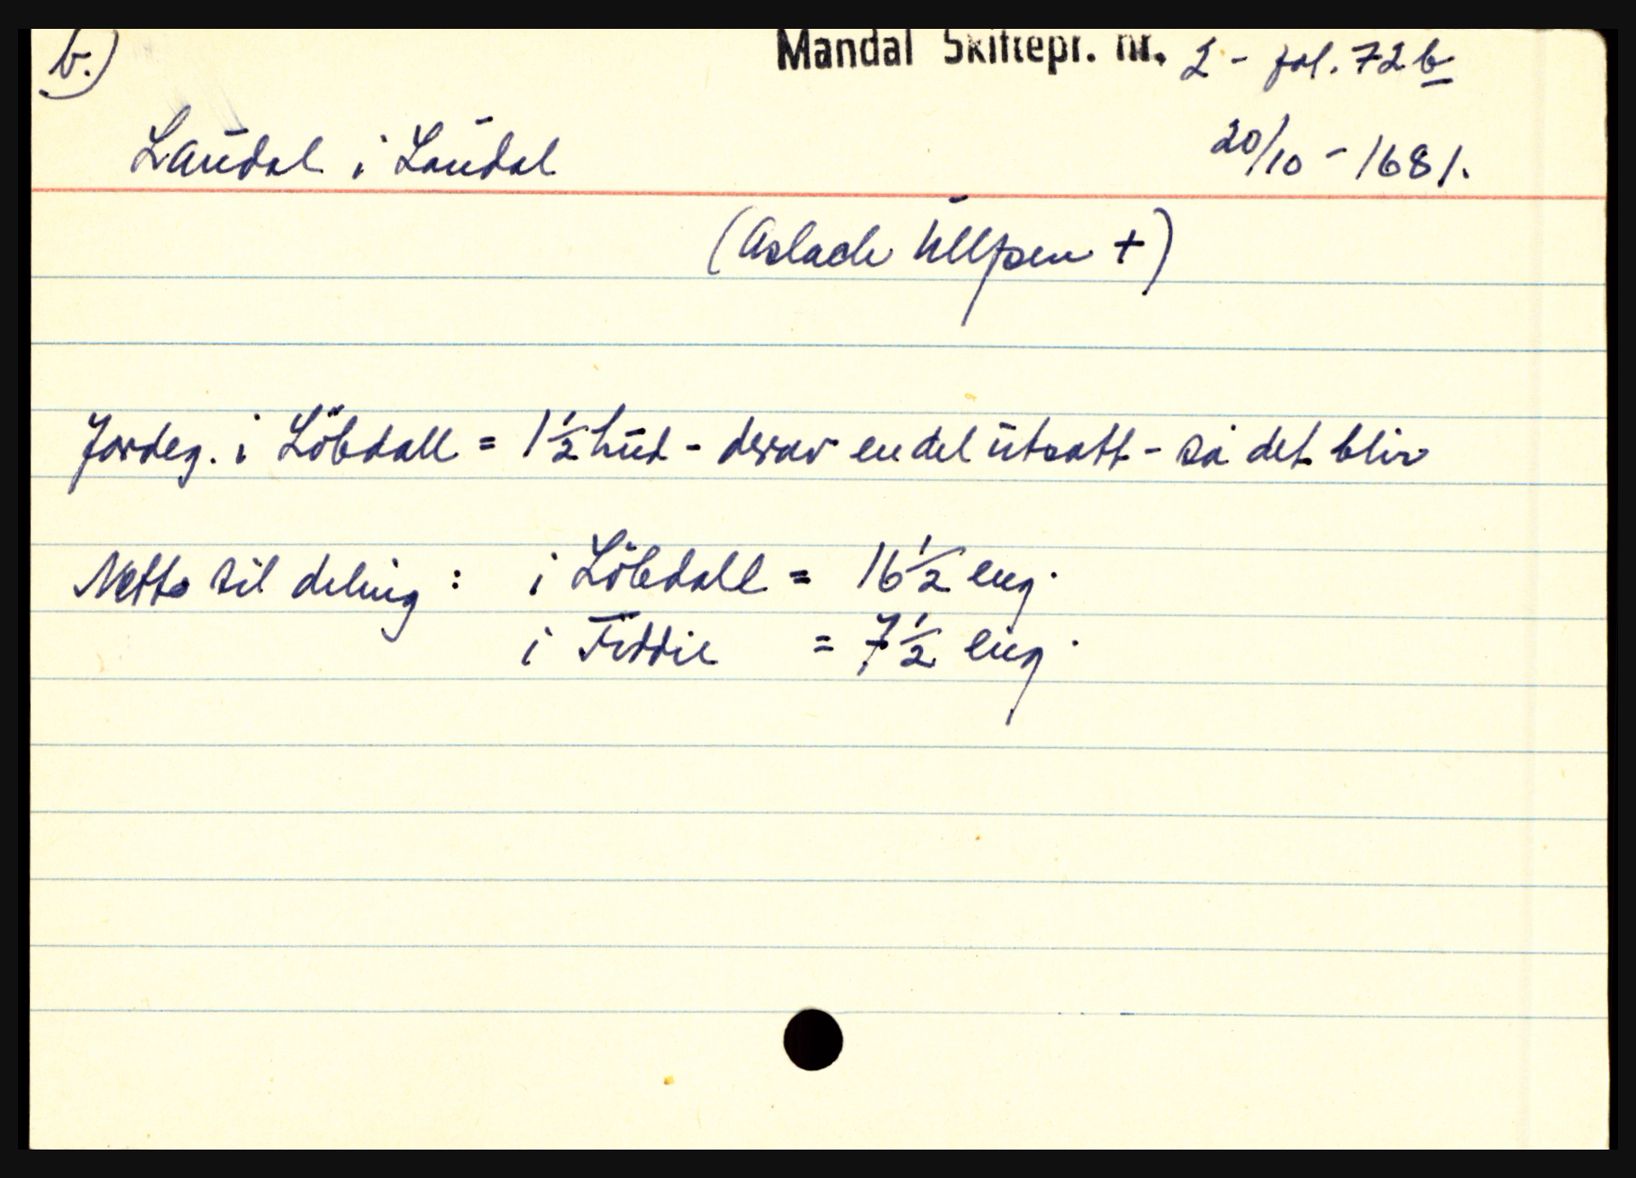 b.)
Mandal Skiftepr. nr. 2 - fol. 72 b
Laudal i Laudal
20/10 - 1681.
(Aslach Ullfsen +)
Jordeg. i Löbdall = 1 ½ hud - derav en del utsatt - så det blir
Netto til deling : i Löbdall = 16 ½ eng.
i Fiddie = 7 ½ eng.